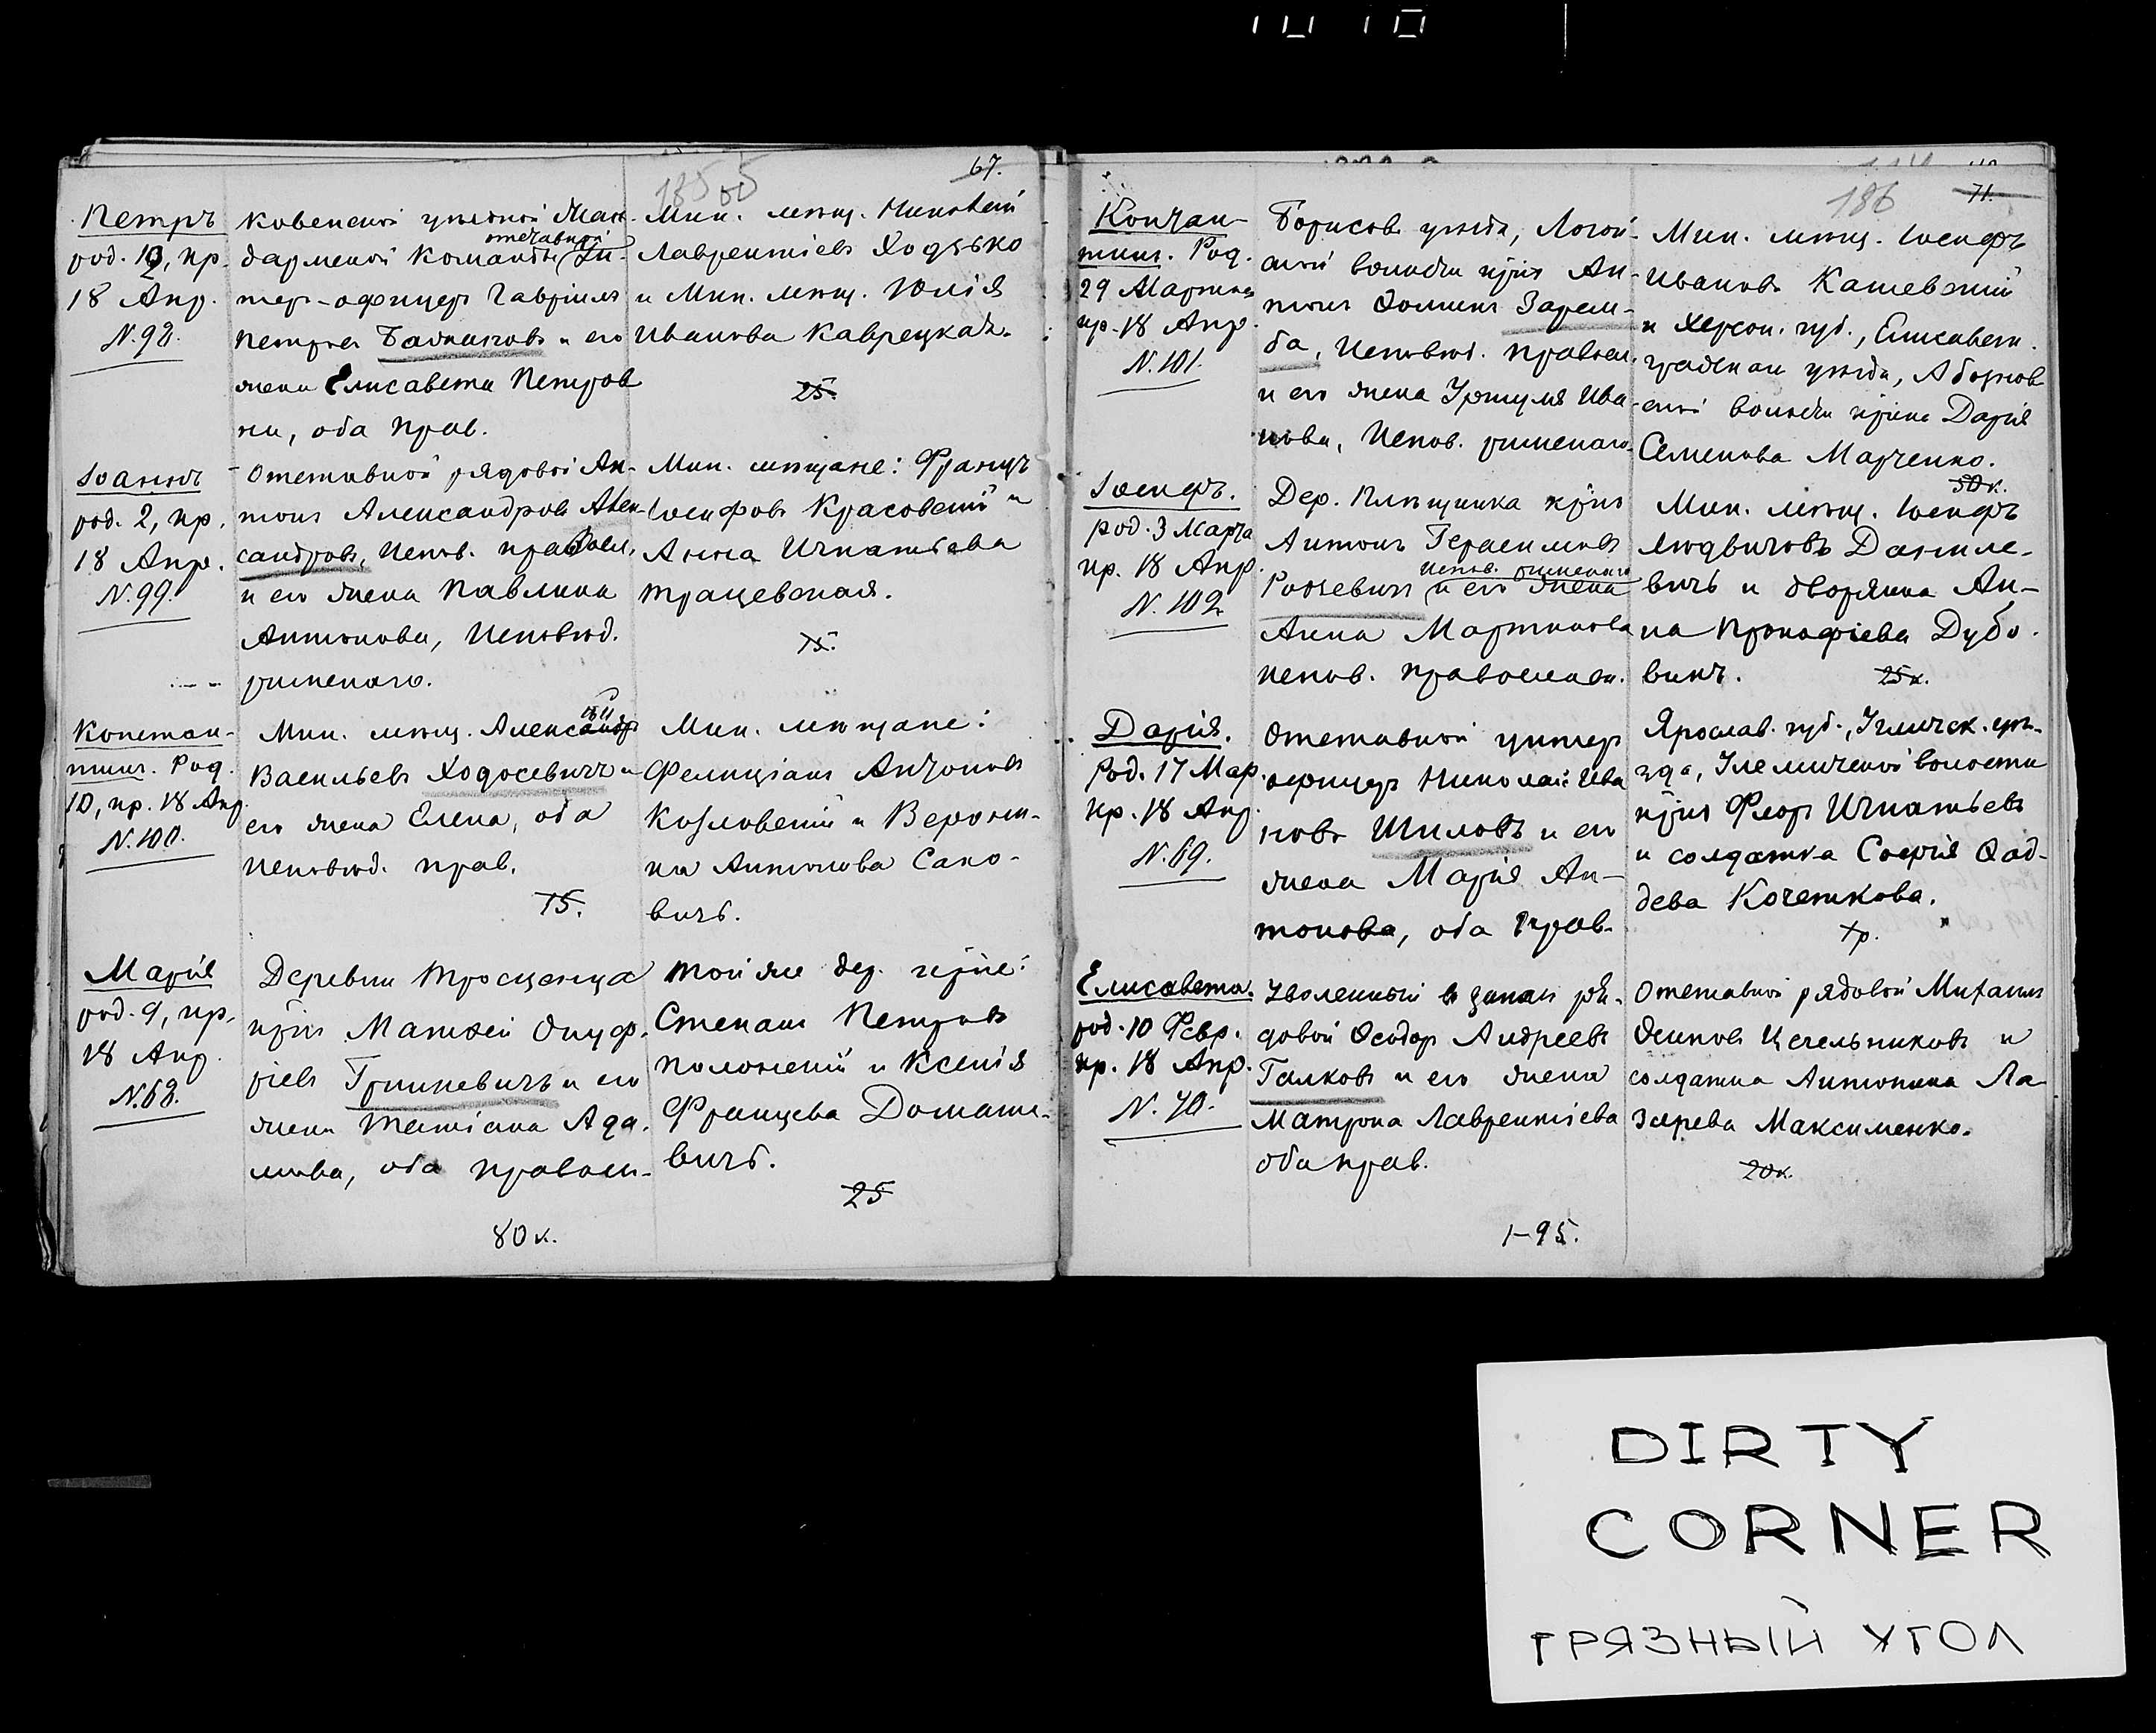 67.
Петръ
род. 12, кр.
18 Апр.
N. 98.
Ковенской уѣздной Жан-
дармской Команды отставной Ун-
теръ-офицеръ Гавріилъ
Петровъ и его
жена Елисавета Петров
на, оба прав.
Мин. мѣщ. Николай
Лаврентіевъ Ходзько
и Мин. мѣщ. Юлія
Иванова Каврецкая.
25.
Іоаннъ
род. 2, кр.
18 Апр.
N. 99.
Отставной рядовой Ан-
тонъ Александровъ Алек-
сандровъ, исповѣд. правосл.
и его жена Павлина
Антонова, исповѣд.
римскаго.
Мин. мѣщане: Францъ
Іосифовъ Красовскій и
Анна Игнатьева
Трацевская.
15.
Констан-
тинъ. Род.
10, кр. 18 Апр.
N. 100.
Мин. мѣщ. Александръ
Васильевъ Ходосевичъ и
его жена Елена, оба
исповѣд. прав.
15.
Мин. мѣщане:
Фелиціанъ Антоновъ
Козловскій и Верони-
ка Антонова Сако-
вичъ.
Марія
род. 9, кр.
18 Апр.
N. 68.
Деревни Тросценца
крест. Матвѣй Онуф-
ріевъ Гринкевичъ и его
жена Татіана Ада-
мова, оба правосл.
80 к.
Той же дер. кр-не:
Степанъ Петровъ
и Ксенія
Францева Домаше-
вичъ.
25
186
71.
Констан-
тинъ. Род.
29 Марта
кр. 18 Апр.
N. 101.
Борисов. уѣзда, Логой-
ской волости кр-нъ Ан-
тонъ Ѳоминъ Зарем-
ба, исповѣд. правосл.
и его жена Уршуля Ива
нова, испов. римскаго.
Мин. мѣщ. Іосифъ
Ивановъ Кашевскій
и Херсон. губ., Елисавет-
градскаго уѣзда,
волости кр-нка Дарія
Семенова Марченко.
50 к.
Іосифъ.
род. 3 Марта
кр. 18 Апр.
N. 102
Дер. кр-нъ
Антонъ Герасимовъ
испов. римскаго
и его жена
Анна Мартинова
испов. православн.
Мин. мѣщ. Іосифъ
Людвиговъ Даниле-
вичъ и дворянка Ан-
на Прокофіева Дубо-
викъ.
25 к.
Дарія.
Род. 17 Мар.
кр. 18 Апр.
N. 69.
Отставной унтеръ
офицеръ Николай Ива
новъ Шиловъ и его
жена Марія Ан-
тонова, оба прав.
Ярослав. губ., Угличск. уѣ-
зда, волости
кр-нъ Флоръ Игнатьевъ
и солдатка Софія Ѳад-
деева Кочеткова.
1 р.
Елисавета.
род. 10 Февр.
кр. 18 Апр.
N. 70.
Уволенный въ запасъ ря-
довой Ѳеодоръ Андреевъ
Галковъ и его жена
Матрона Лаврентіева
оба прав.
1-95.
Отставной рядовой Михаилъ
Осиповъ Цегельниковъ и
солдатка Антонина Ла-
зарева Максименко.
20 к.
DIRTY
CORNER
ГРЯЗНЫЙ УГОЛ